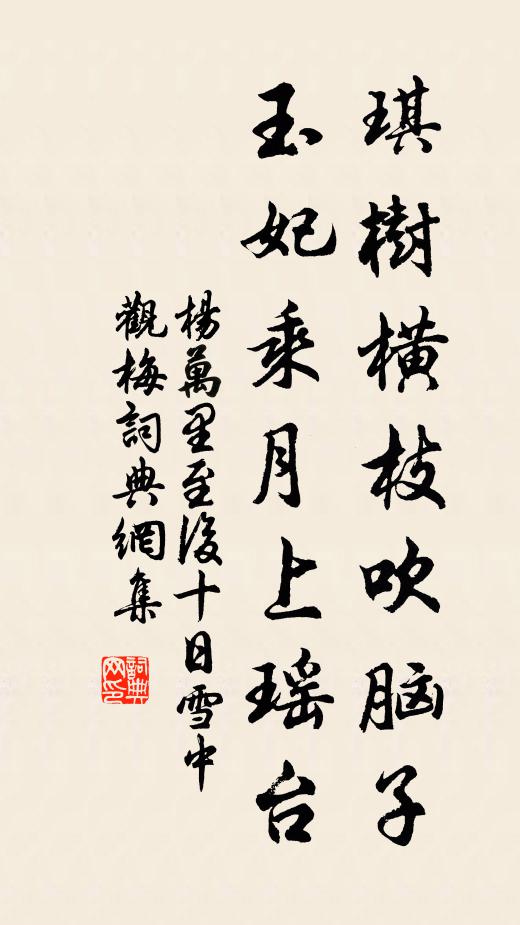 琪樹橫枝吹脑子
玉妃乘月上瑶台
楊萬里至後十日雪中
觀梅詞典網集
詞典
网印